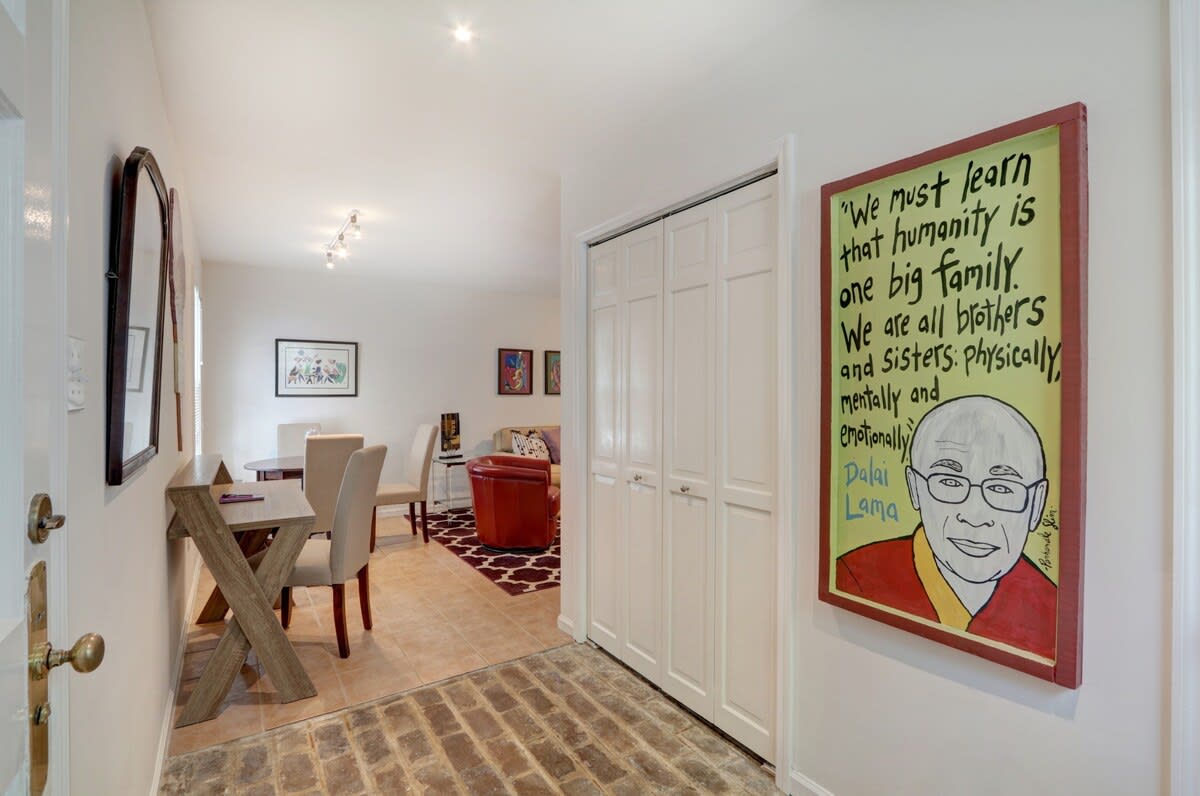 "We must learn
that humanity is
one big family.
We are all brothers
and sisters: physically,
mentally and
emotionally"
Dalai
Lama